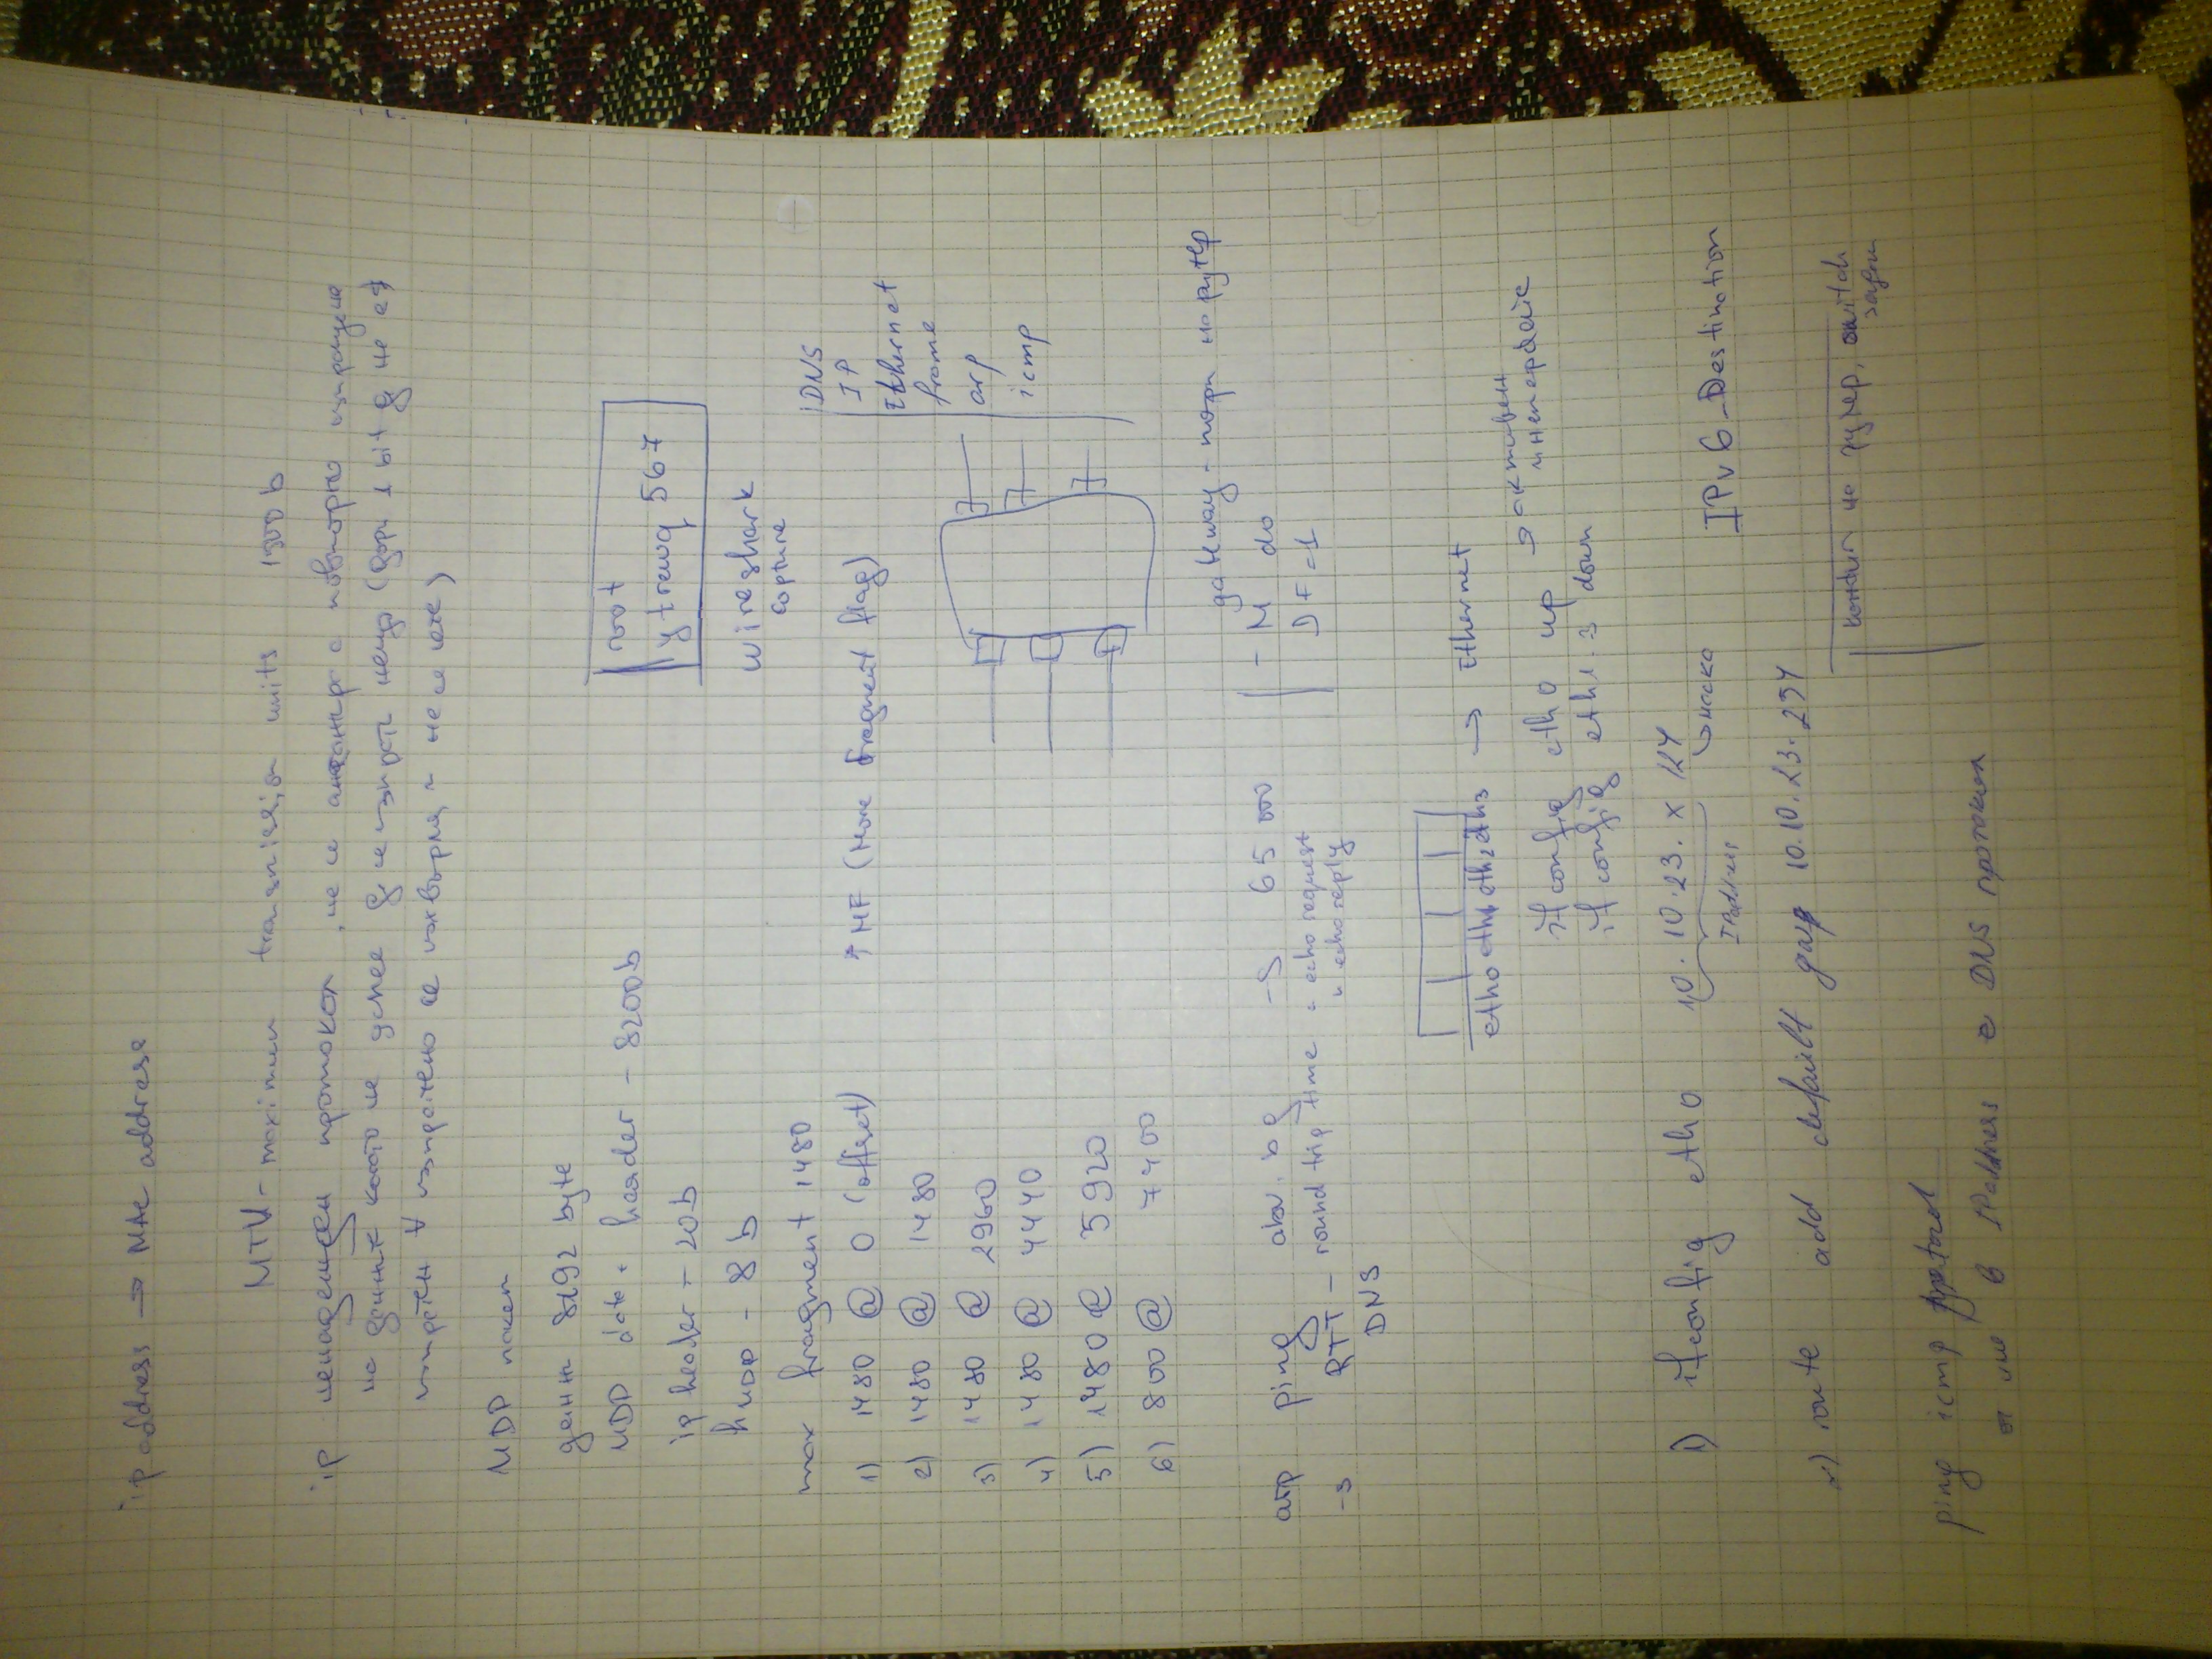 ip address → MAC address
MTU - maximum transmission units 1500 b
ip ненадежден протокол, не се ангажира с повторно изпращане
на данните, което не успее да се изпрати нещо (дори 1 bit да не е
изпратен изпратено се изхвърля и не се чете)
UDP пакет
данни 8192 byte
UDP data + header - 8200b
ip header - 20b
h UDP - 8 b
root
ytrewq 567
wireshark
capture
max fragment 1480
1) 1480 @ 0 (offset) ↑ MF (More fragment flag)
2) 1480 @ 1480
3) 1480 @ 2960
4) 1480 @ 4440
5) 1480 @ 5920
6) 800 @ 7400
DNS
IP
Ethernet
frame
arp
icmp
gateway - порт на рутер
arp ping abv.bg -s 65 000
- M do
DF=1
-s RTT - round trip time - echo request
и echo reply
DNS
eth0 eth1 eth2 eth3 → ethernet
ifconfig eth0 up → активен интерфейс
ifconfig eth1.3 down
1) ifconfig eth0 10.10.23.x /24
IPaddress
маска
IPv6_Destination
2) route add default gw 10.10.23.254
на рутер, switch
ping icmp
в IPaddress е DNS протокол